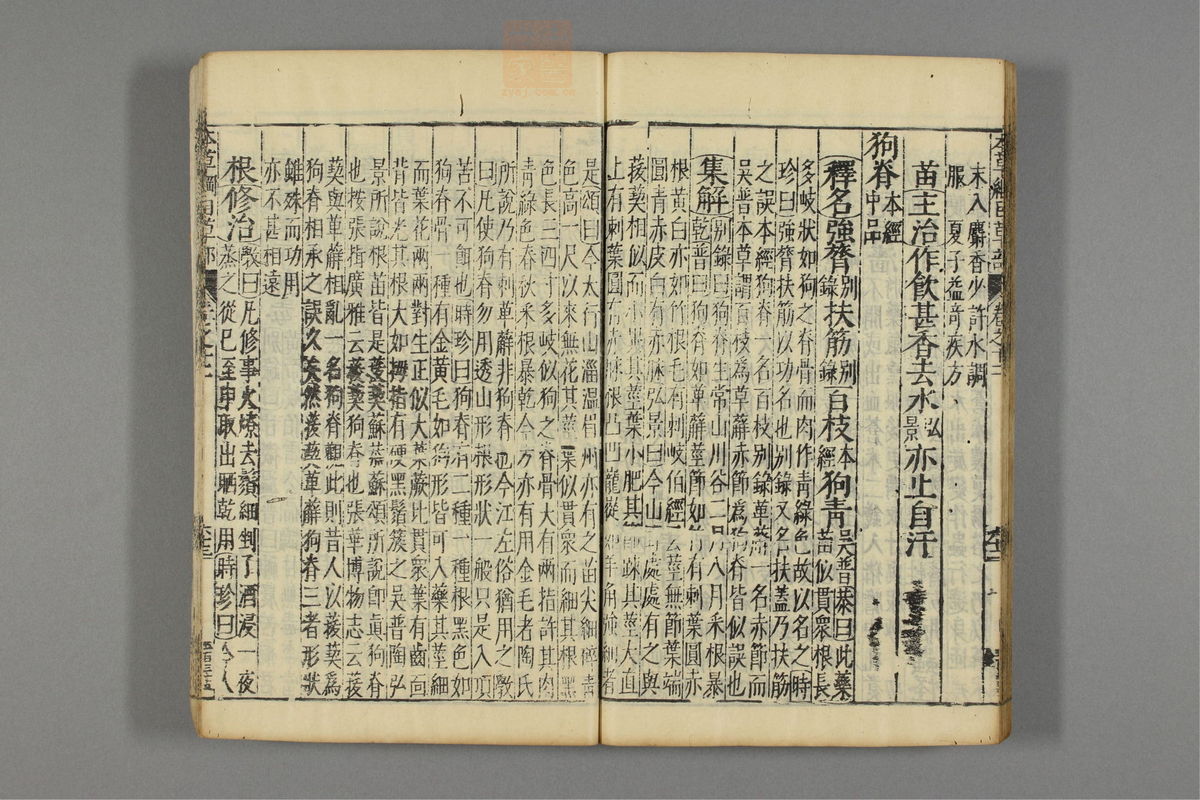 末入麝香少許水調
服 夏子益奇疾方
苗主治作飲甚香去水弘景亦止自汗
狗脊本經中品
釋名強膂別錄扶筋別錄百枝本經狗青吳普恭曰此藥苗似貫衆根長
多岐狀如狗之脊骨而肉作青綠色故以名之時
珍曰強膂扶筋以功名也別錄又名扶蓋乃扶筋
之誤本經狗脊一名百枝別錄萆薢一名赤節而
吳普本草謂百枝為萆薢赤節為狗脊皆似誤也
集解別錄曰狗脊生常山川谷二月八月采根暴
乾普曰狗脊如萆薢莖節如竹有刺葉圓赤
根黃白亦如竹根毛有刺岐伯經云莖無節葉端
圓青赤皮白有赤脉弘景曰今山野處處有之與
菝葜相似而小異其莖葉小肥其節疎其莖大直
上有刺葉圓有赤脉根凸凹巃嵸如羊角強細者
是頌曰今太行山淄溫眉州亦有之苗尖細碎青
色高一尺以來無花其莖葉似貫衆而細其根黑
色長三四寸多岐似狗之脊骨大有兩指許其肉
青綠色春秋采根暴乾今方亦有用金毛者陶氏
所說乃有刺萆薢非狗脊也今江左俗猶用之斆
曰凡使狗脊勿用透山形根形狀一般只是入頂
苦不可餌也時珍曰狗脊有二種一種根黑色如
狗脊骨一種有金黃毛如狗形皆可入藥其莖細
而葉花兩兩對生正似大葉蕨比貫衆葉有齒面
背皆光其根大如拇指有硬黑鬚簇之吳普陶弘
景所說根苗皆是菝葜蘇恭蘇頌所說即眞狗脊
也按張揖廣雅云菝葜狗脊也張華博物志云菝
葜與萆薢相亂一名狗脊觀此則昔人以菝葜為
狗脊相承之誤久矣然菝葜萆薢狗脊三者形狀
雖殊而功用
亦不甚相遠
根修治斆曰凡修事火燎去鬚細剉了酒浸一夜
蒸之從巳至申取出晒乾用時珍曰今人
本草綱目草部